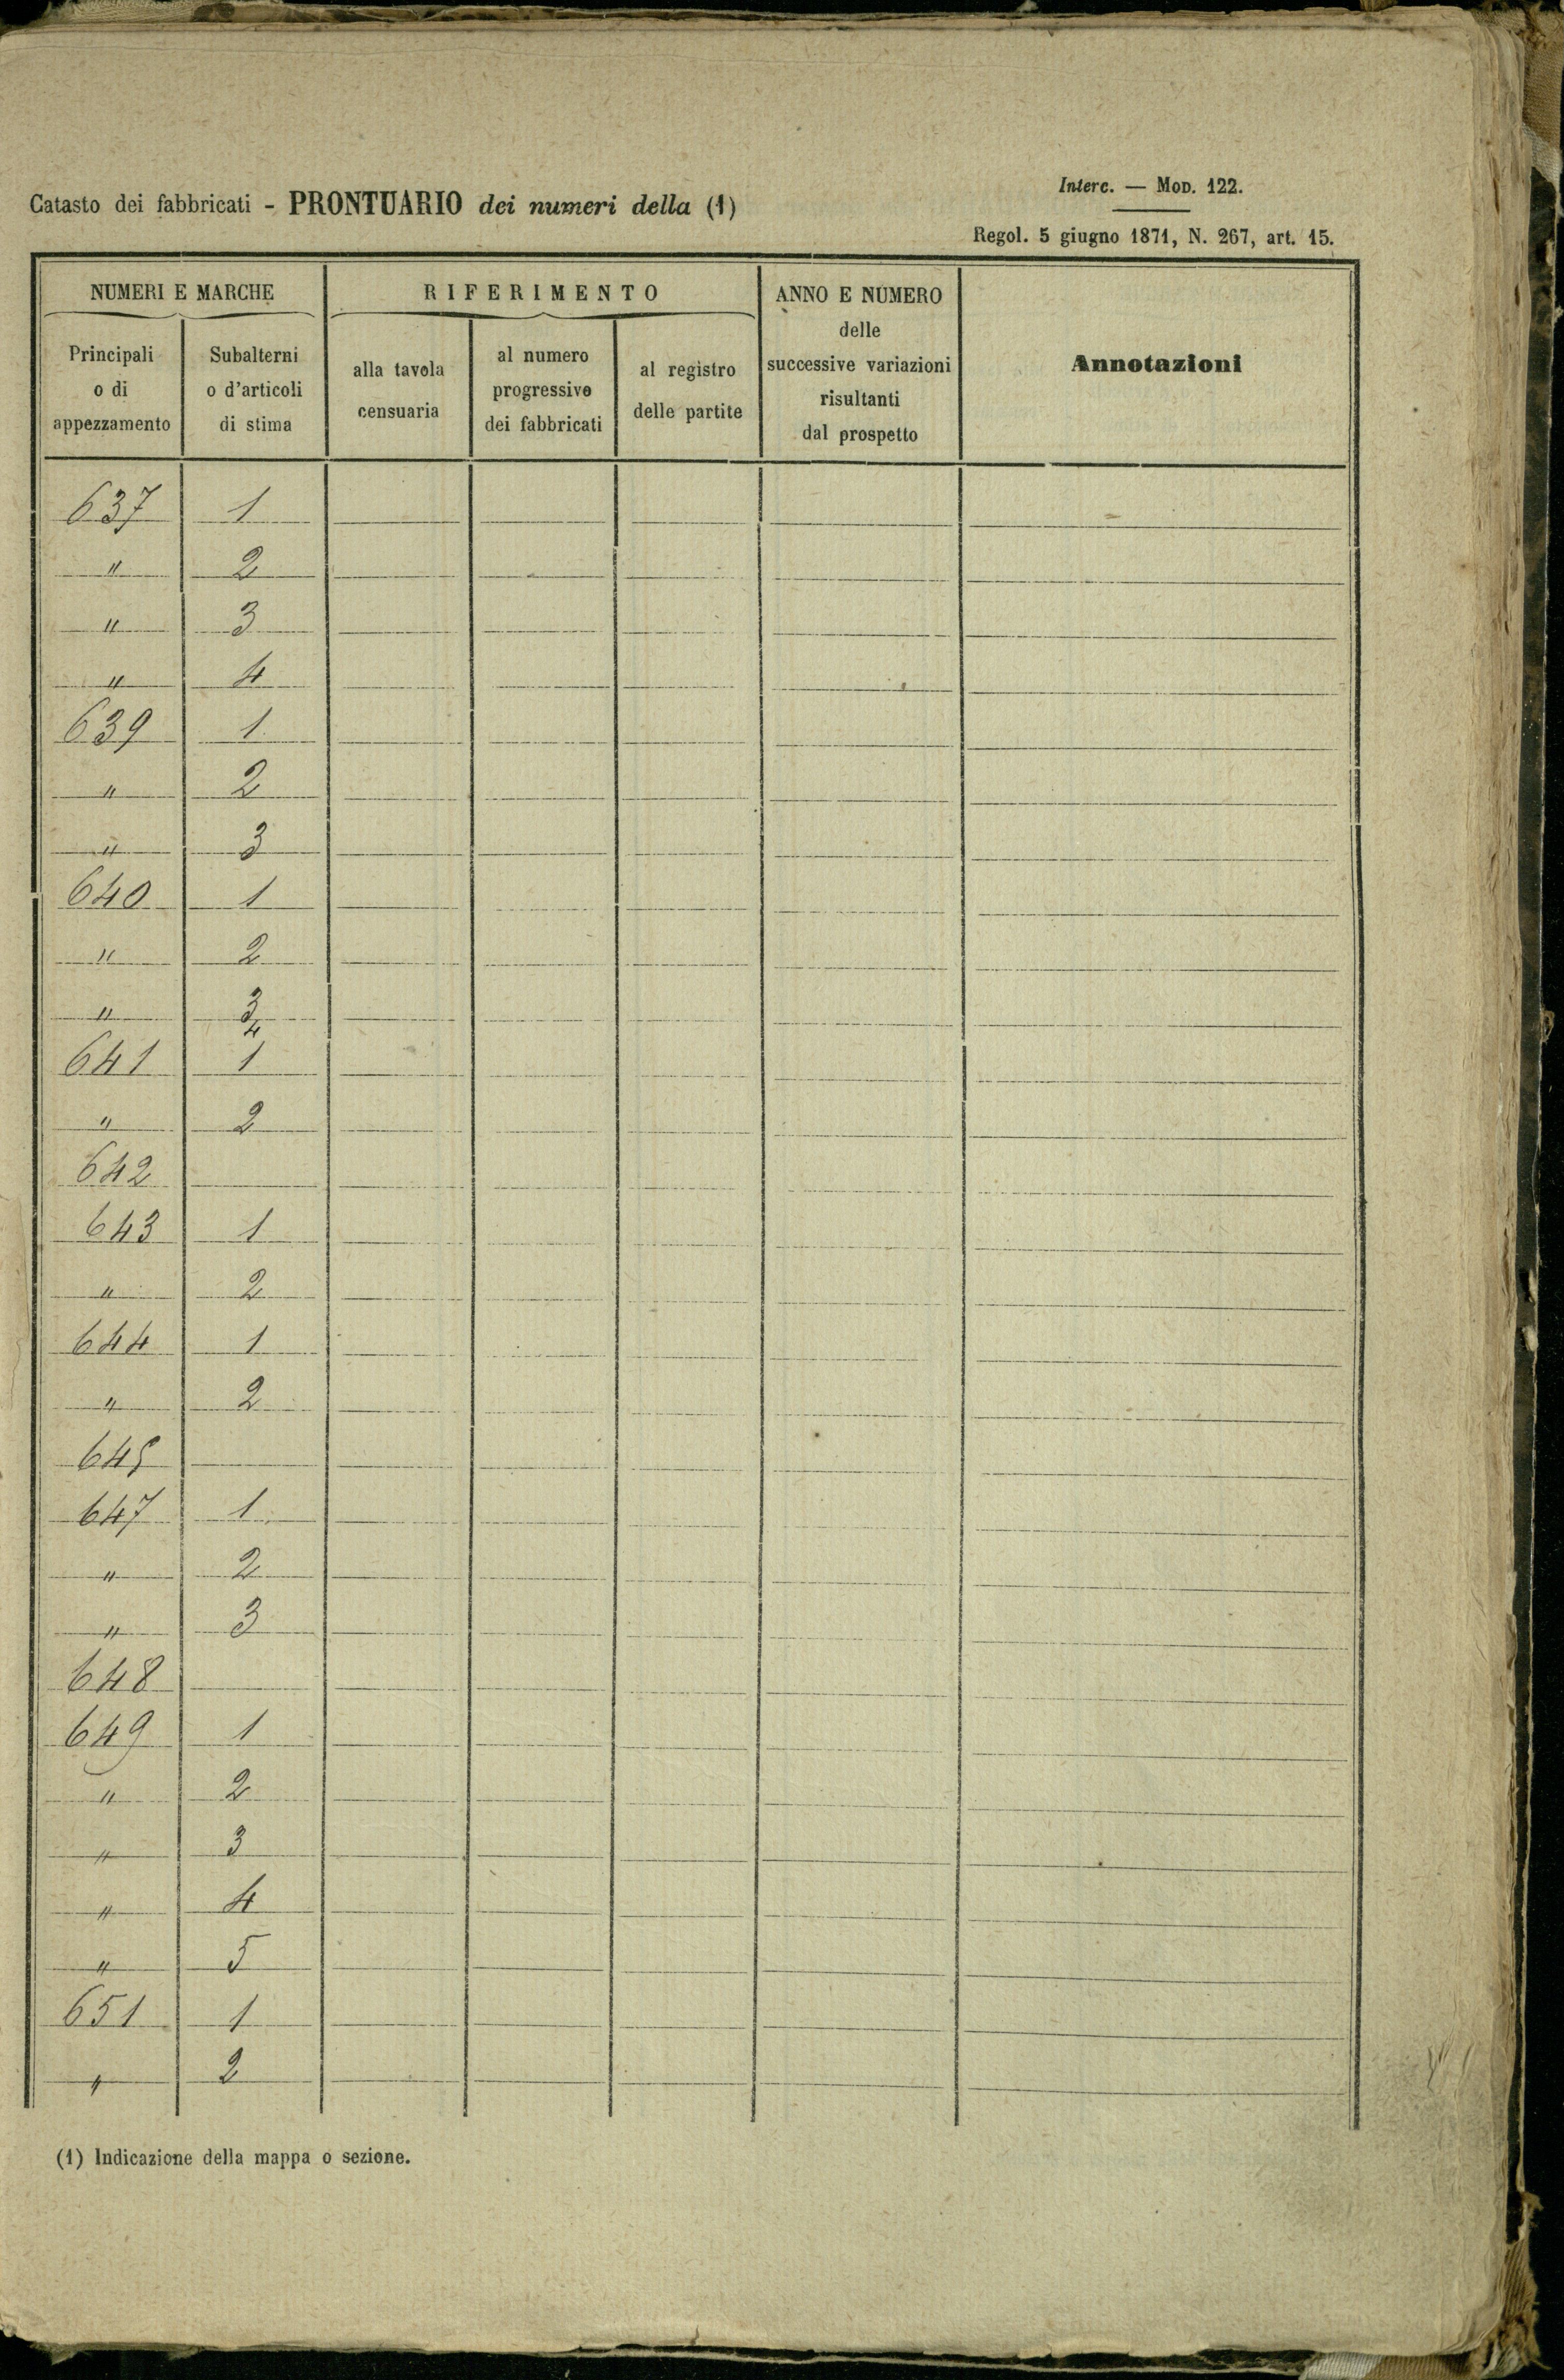 Interc. — Mod. 122.
Catasto dei fabbricati - PRONTUARIO dei numeri della (1)
Regol. 5 giugno 1871, N. 267, art. 15.
NUMERI E MARCHE
RIFERIMENTO
ANNO E NUMERO
delle
successive variazioni
risultanti
dal prospetto
Annotazioni
Principali
o di
appezzamento
Subalterni
o d'articoli
di stima
alla tavola
censuaria
al numero
progressivo
dei fabbricati
al registro
delle partite
637 1
" 2
" 3
" 4
639 1
" 2
" 3
640 1
" 2
" 3
4
641 1
" 2
642
643 1
" 2
644 1
" 2
645
647 1
" 2
" 3
648
649 1
" 2
" 3
" 4
" 5
651 1
" 2
(1) Indicazione della mappa o sezione.